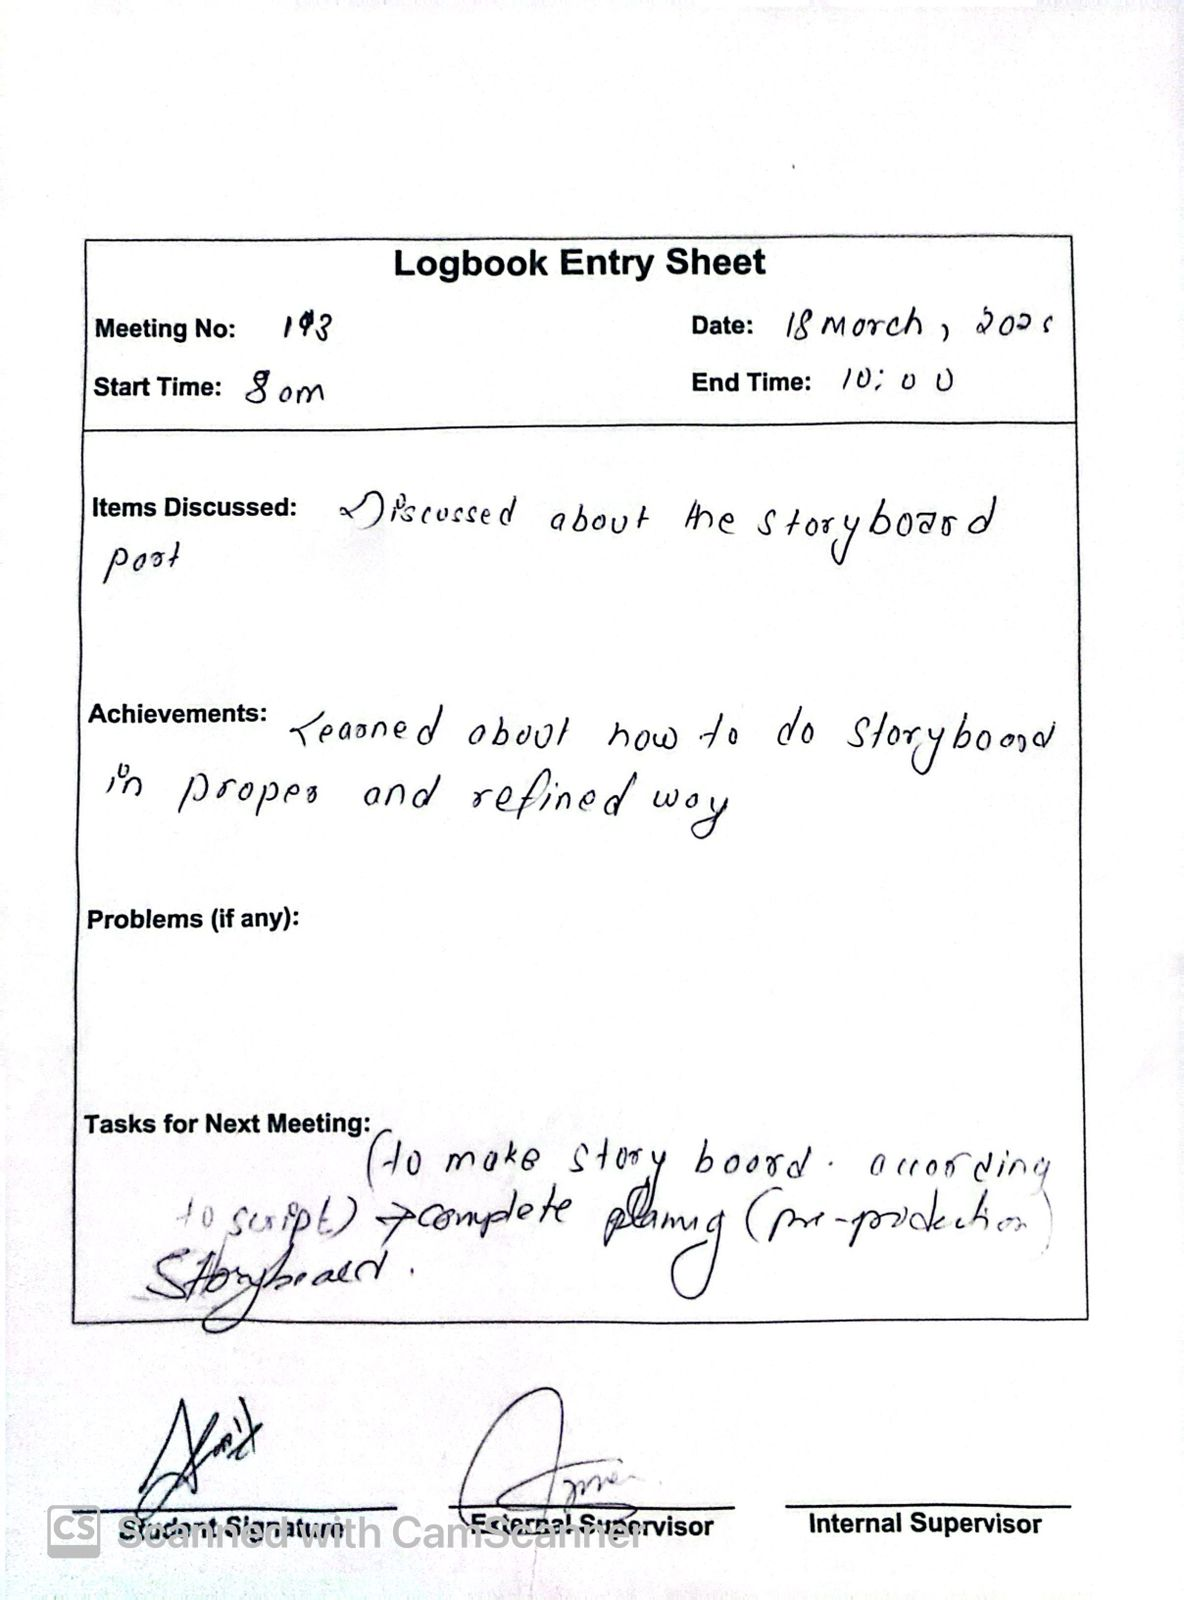 Logbook Entry Sheet
Meeting No: 193
Date: 18 March, 2025
Start Time: 8 am
End Time: 10:00
Items Discussed: Discussed about the storyboard
part
Achievements: Learned about how to do storyboard
in proper and refined way
Problems (if any):
Tasks for Next Meeting:
(to make story board. according
to script) → complete planning (pre-production)
Storyboard.
Student Signature
External Supervisor
Internal Supervisor
CS Scanned with CamScanner